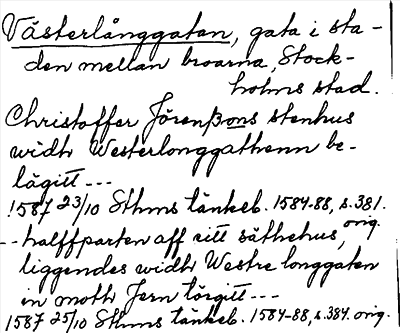 Västerlånggatan, gata i sta-
den mellan broarna, Stock-
holms stad.
Christoffer Jörenßons stenhus
widh Westerlonggathenn be-
lägitt ---
1587 23/10 Sthms tänkeb. 1584-88, s. 381.
-- halffparten aff sitt säthehus, orig.
liggendes widh Westre longgaten
in moth Jern törgitt ---
1587 25/10 Sthms tänkeb. 1584-88, s. 384. orig.